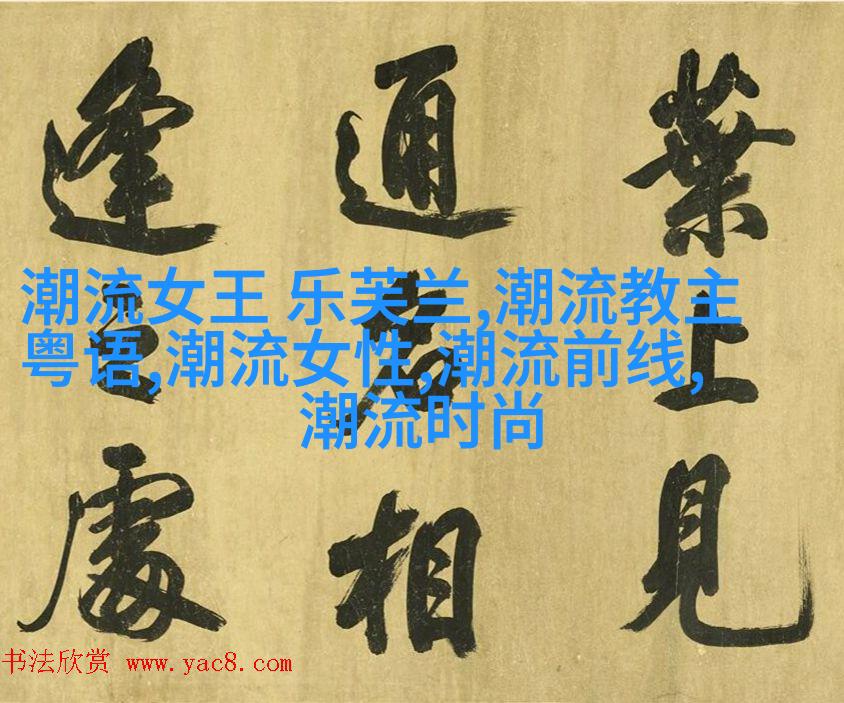 葉上見
通相
逢處
潮流女王 乐芙兰,潮流教主
粤语,潮流女性,潮流前线,
潮流时尚
书法欣赏 www.yac8.com